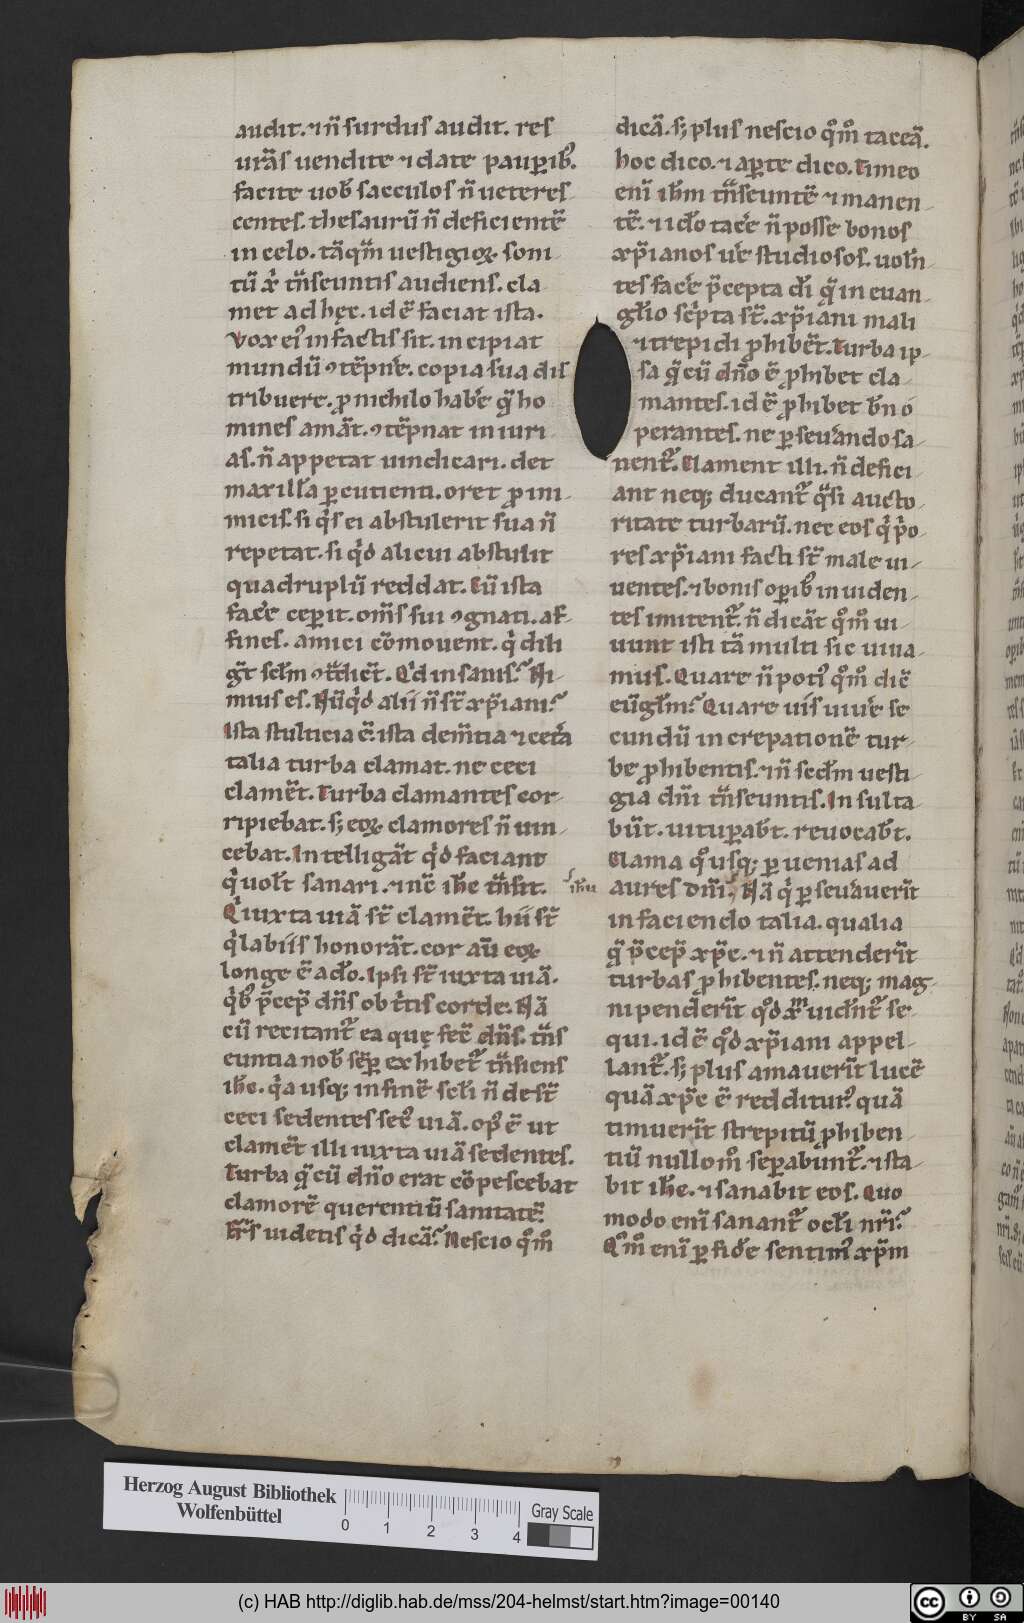 audit. ⁊ n̄ surdus audit. res
ur̄as uendite ⁊ date paup̱ib᷒.
facite uob̄ sacculos n̄ ueteres-
centes. thesaurū n̄ deficientē
in celo. tāqͣm uestigioꝝ soni-
tū xp̄i tͣnseuntis audiens. cla-
met ad hęc. id ē faciat ista.
Vox ei᷒ in factis sit. incipiat
mundū ꝯtēpnēe. copia sua dis
tribuere. ꝓ nichilo hab̄e q̄ ho
mines amāt. ꝯtēpnat iniuri-
as. n̄ appetat uindicari. det
maxillā ꝑcutienti. oret ꝓ ini-
micis. si qͥs ei abstulerit sua n̄
repetat. si qͥd alicui abstulit
quadruplū reddat. Cū ista
fac̄e cep̱it. om̄s sui ꝯgnati. af-
fines. amici cōmouent. qͥ dili
gt̄ sc̄lm ꝯtͣdic̄t. Qͥd insanis? Ni-
mius es. Nūqͥd alii n̄ st̄ xp̄iani?
Ista stulticia ē. ista dem̄tia ⁊ cet̄a
talia turba clamat. ne ceci
clamēt. Turba clamantes cor-
ripiebat. s; eoꝝ clamores n̄ uin-
cebat. Intelligāt qͥd faciant
qͥ uolt̄ sanari. ⁊ nc̄ ih̄c tͣnsit.
ih̄u
Qͥ iuxta uiā st̄ clamēt. hii st̄
qͥ labiis honorāt. cor aū eoꝝ
longe ē a d̄o. Ipsi st̄ iuxta uiā.
qͥb᷒ p̄cep̱ dn̄s obtͥtis corde. Nā
cū recitant᷑ ea quę fec̄ dn̄s. tͣns
euntia nob̄ sēp̱ exhibet᷑ tͣnsiens
ih̄c. qͥa usq; in finē sc̄li n̄ dest̄
ceci sedentes sec᷒ uiā. op᷒ ē ut
clamēt illi iuxta uiā sedentes.
Turba q̄ cū dn̄o erat cōpescebat
clamorē querentiū sanitatē.
Fr̄s uidetis qͥd dicā? Nescio qͦmͦ
dicā. s; plus nescio qͦmͦ taceā.
hoc dico. ⁊ ap̱te dico. Timeo
enī ih̄m tͣnseuntē ⁊ manen-
tē. ⁊ id̄o tac̄e n̄ posse bonos
xp̄ianos ūe studiosos. uoln̄-
tes fac̄e p̄cepta dī q̄ in euan-
gl̄io sc̄pta st̄. xp̄iani mali
⁊ trepidi ꝓhibēt. Turba ip-
sa q̄ cū dn̄o ē ꝓhibet cla-
mantes. id ē ꝓhibet bn̄ o
perantes. ne ꝑseūando sa-
nent᷑. Clament illi. n̄ defici
ant neq; ducant᷑ qͣsi aucto-
ritate turbarū. nec eos qͥ pͥo-
res xp̄iani facti st̄ male ui-
uentes. ⁊ bonis op̱ib᷒ inuiden-
tes imitent᷑. n̄ dicāt qͦmͦ ui-
uunt isti tā multi sic uiua-
mus. Quare n̄ poti᷒ qͦmͦ dic̄
eūgl̄m? Quare uis uiūe se
cundū increpationē tur-
be ꝓhibentis. ⁊ n̄ sc̄dm uesti-
gia dn̄i tͣnseuntis. Insulta
būt. uitup̱abt̄. reuocabt̄.
Clama qͦusq; ꝑuenias ad
aures dn̄i. Nā qͥ ꝑseūauer̄it
in faciendo talia. qualia
q̄ p̄cep̱ xp̄c. ⁊ n̄ attender̄it
turbas ꝓhibentes. neq; mag-
nipender̄it qͦd xp̄m uidn̄t᷑ se-
qui. id ē qͦd xp̄iani appel-
lant᷑. s; plus amauer̄it lucē
quā xp̄c ē redditur᷒ quā
timuer̄it strepitū ꝓhiben-
tiū nullomͦ sep̱abunt᷑. ⁊ sta-
bit ih̄c. ⁊ sanabit eos. Quo
modo enī sanant᷑ ocl̄i nr̄i?
Qͦmͦ enī ꝑ fidē sentim᷒ xp̄m
Herzog August Bibliothek
Wolfenbüttel
0 1 2 3 4
Gray Scale
(c) HAB http://diglib.hab.de/mss/204-helmst/start.htm?image=00140
cc BY SA